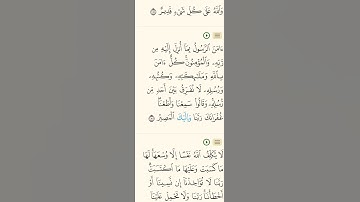 وَٱللَّهُ عَلَىٰ كُلِّ شَىْءٍ قَدِيرٌ
ءَامَنَ ٱلرَّسُولُ بِمَآ أُنزِلَ إِلَيْهِ مِن
رَّبِّهِۦ وَٱلْمُؤْمِنُونَ ۚ كُلٌّ ءَامَنَ
بِٱللَّهِ وَمَلَـٰٓئِكَتِهِۦ وَكُتُبِهِۦ
وَرُسُلِهِۦ لَا نُفَرِّقُ بَيْنَ أَحَدٍ مِّن
رُّسُلِهِۦ ۚ وَقَالُوا۟ سَمِعْنَا وَأَطَعْنَا ۖ
غُفْرَانَكَ رَبَّنَا وَإِلَيْكَ ٱلْمَصِيرُ
لَا يُكَلِّفُ ٱللَّهُ نَفْسًا إِلَّا وُسْعَهَا ۚ لَهَا
مَا كَسَبَتْ وَعَلَيْهَا مَا ٱكْتَسَبَتْ ۗ
رَبَّنَا لَا تُؤَاخِذْنَآ إِن نَّسِينَآ أَوْ
أَخْطَأْنَا ۚ رَبَّنَا وَلَا تَحْمِلْ عَلَيْنَآ